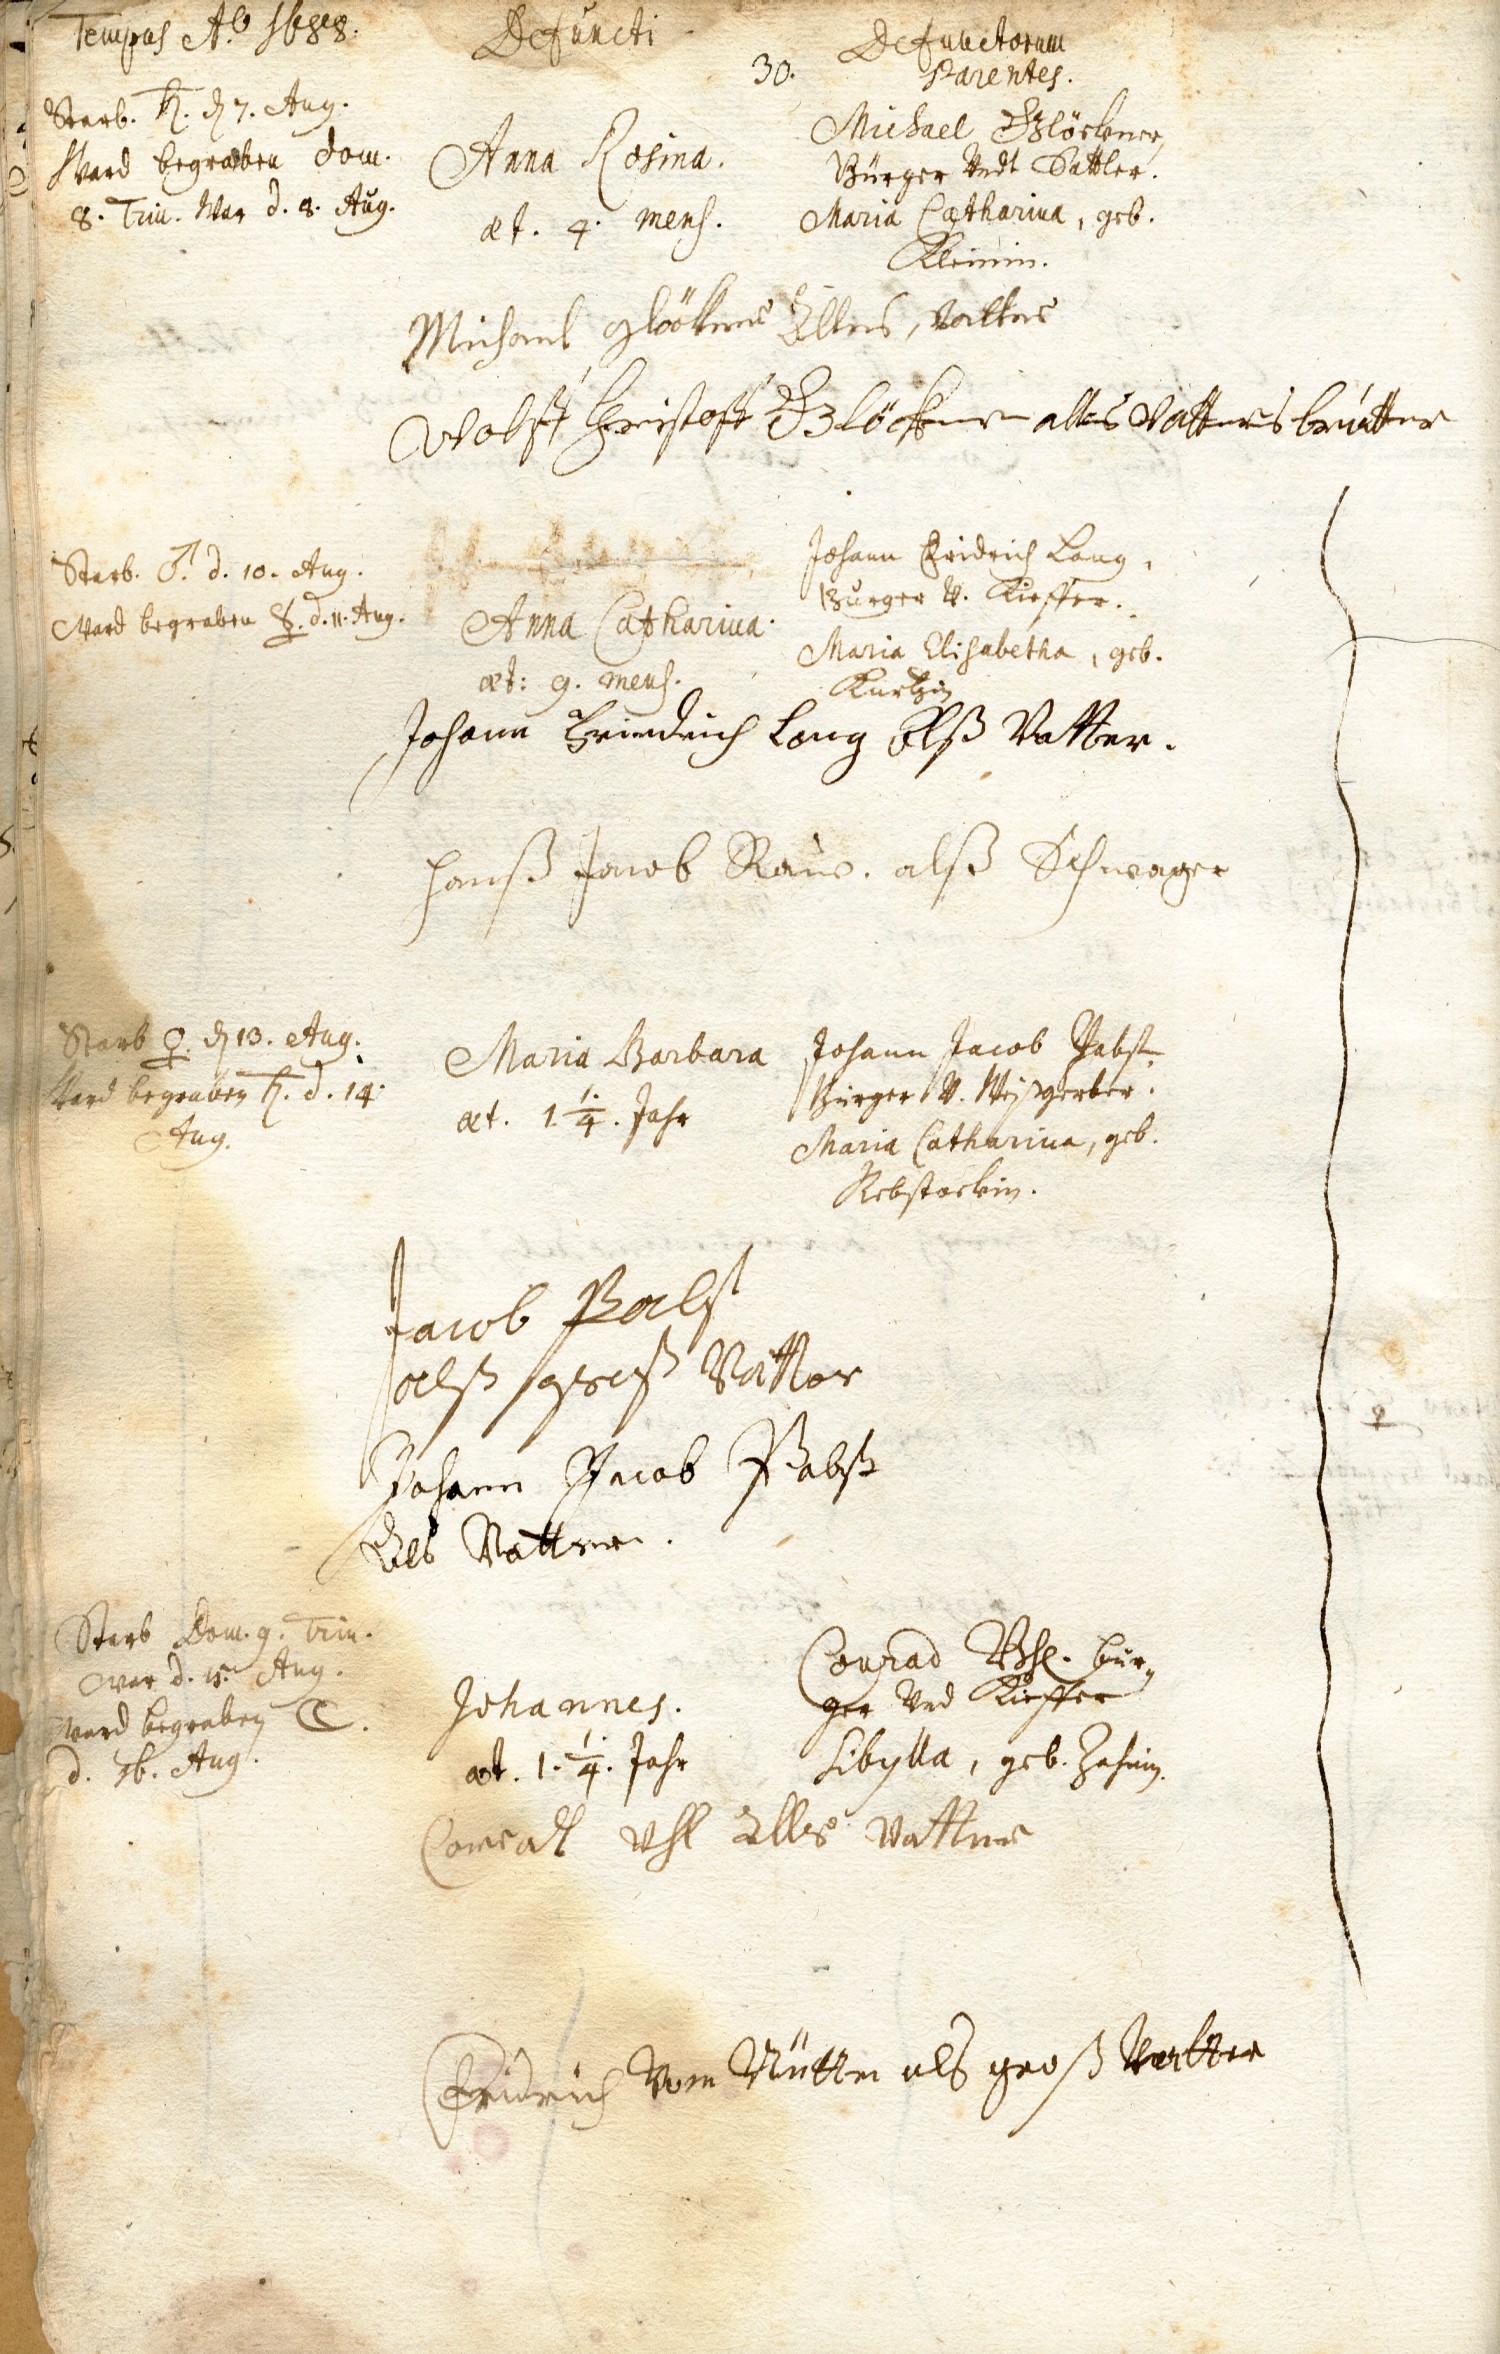 Tempus Aō 1688.
Defuncti
30.
Defunctorum
Parentes.
Starb. ♄. d 7. Aug.
Ward begraben Dom.
8. Trin. war d. 8. Aug.
Anna Rosina.
æt. 4. mens.
Michael Glöckner,
Bürger Undt Sattler.
Maria Catharina, geb.
Kleinin.
Michael glöckner Alls, vatter
Wolff Christoff Glöckner alls Vatters brutter
Starb. ♂. d. 10. Aug.
Ward begraben ☿. d. 11. Aug.
Anna Catharina.
æt: 9. mens.
Johann Fridrich Lang,
Burger V. Kieffer.
Maria Elisabetha, geb.
Kurtzin
Johann Friedrich Lang Alß Vatter.
Hanß Jacob alß Schwager
Starb ♀. d 13. Aug.
Ward begraben ♄. d. 14.
Aug.
Maria Barbara
æt. 1 1/4. Jahr
Johann Jacob Pabst
Bürger V. Weyßgerber.
Maria Catharina, geb.
Rebstockin.
Jacob Pabst
alß groß Vatter
Johann Jacob Pabst
Als Vatter.
Starb Dom. 9. Trin.
war d. 15. Aug.
ward begraben ☾.
d. 16. Aug.
Johannes.
æt. 1. 1/4. Jahr
Conrad Uhl. bur-
ger Und Kieffer
Sibylla, geb. Zahnin.
Conrad Uhl Alls Vatter
Fridrich Von als groß Vatter